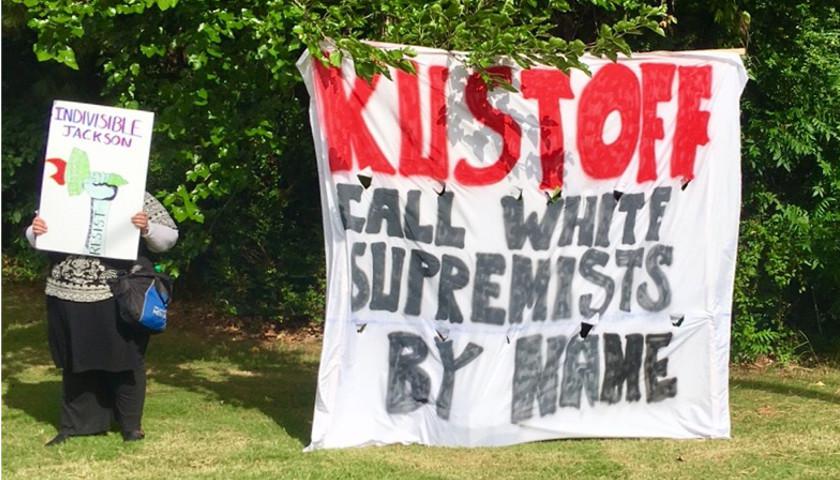 INDIVISIBLE
JACKSON
RESIST
KUSTOFF
CALL WHITE
SUPREMISTS
BY NAME